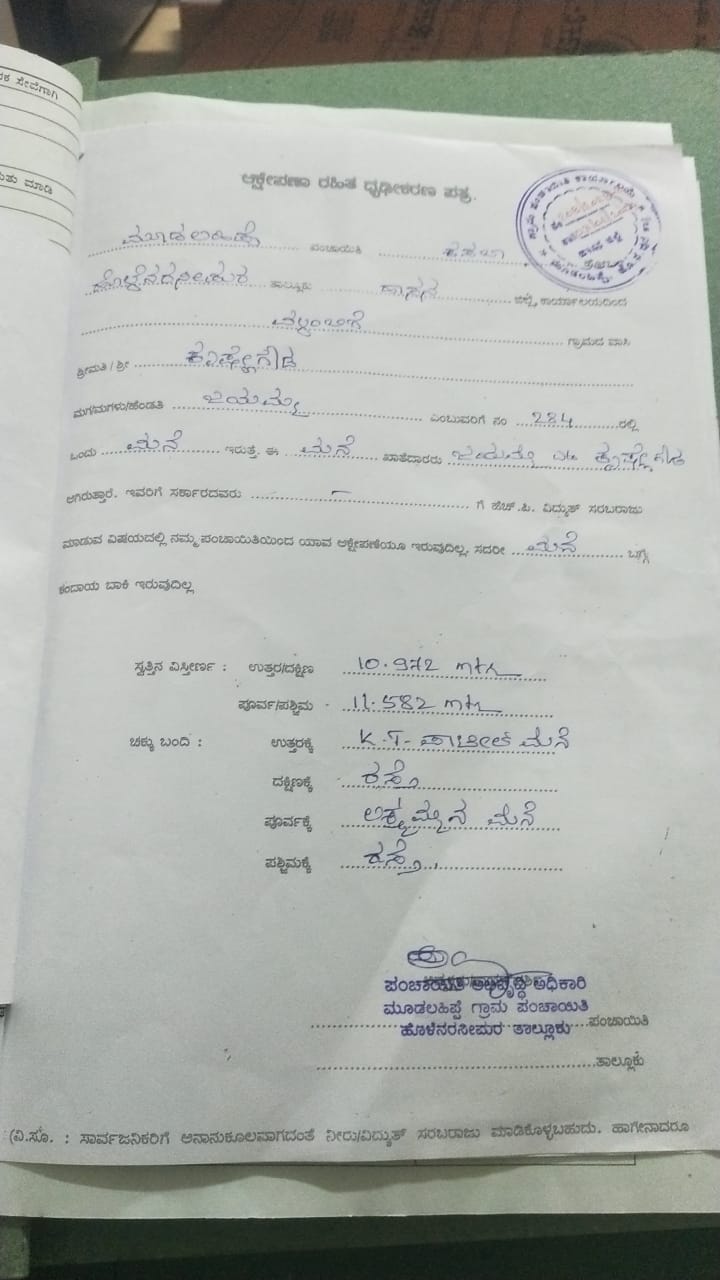 ತುರ್ತು ಮಾಡಿ
ಆಕ್ಷೇಪಣಾ ರಹಿತ ದೃಢೀಕರಣ ಪತ್ರ
ಮೂಡಲಹಿಪ್ಪೆ ಪಂಚಾಯಿತಿ ಕಸಬಾ
ಹೊಳೆನರಸೀಪುರ ತಾಲ್ಲೂಕು ಹಾಸನ ಜಿಲ್ಲೆ, ಕಾರ್ಯಾಲಯದಿಂದ
ಗ್ರಾಮದ ವಾಸಿ
ಶ್ರೀಮತಿ / ಶ್ರೀ ಕೃಷ್ಣೇಗೌಡ
ಮಗ/ಮಗಳು/ಹೆಂಡತಿ ಜಯಮ್ಮ ಎಂಬುವರಿಗೆ ನಂ 284 ರಲ್ಲಿ
ಒಂದು ಮನೆ ಇರುತ್ತೆ. ಈ ಮನೆ ಖಾತೆದಾರರು ಜಯಮ್ಮ ಕೃಷ್ಣೇಗೌಡ
ಆಗಿರುತ್ತಾರೆ. ಇವರಿಗೆ ಸರ್ಕಾರದವರು – ಗೆ ಹೆಚ್.ಪಿ. ವಿದ್ಯುತ್ ಸರಬರಾಜು
ಮಾಡುವ ವಿಷಯದಲ್ಲಿ ನಮ್ಮ ಪಂಚಾಯಿತಿಯಿಂದ ಯಾವ ಆಕ್ಷೇಪಣೆಯೂ ಇರುವುದಿಲ್ಲ, ಸದರೀ ಮನೆ ಬಗ್ಗೆ
ಕಂದಾಯ ಬಾಕಿ ಇರುವುದಿಲ್ಲ
ಸ್ವತ್ತಿನ ವಿಸ್ತೀರ್ಣ : ಉತ್ತರ/ದಕ್ಷಿಣ 10.972 mtr
ಪೂರ್ವ/ಪಶ್ಚಿಮ 11.582 mtr
ಚಕ್ಕು ಬಂದಿ : ಉತ್ತರಕ್ಕೆ K.T. ಪಾಟೀಲ್ ಮನೆ
ದಕ್ಷಿಣಕ್ಕೆ ರಸ್ತೆ
ಪೂರ್ವಕ್ಕೆ ಮನೆ
ಪಶ್ಚಿಮಕ್ಕೆ ರಸ್ತೆ.
ಪಂಚಾಯಿತಿ ಅಭಿವೃದ್ಧಿ ಅಧಿಕಾರಿ
ಮೂಡಲಹಿಪ್ಪೆ ಗ್ರಾಮ ಪಂಚಾಯಿತಿ
ಹೊಳೆನರಸೀಪುರ ತಾಲ್ಲೂಕು ಪಂಚಾಯಿತಿ
ತಾಲ್ಲೂಕು
(ವಿ.ಸೂ. : ಸಾರ್ವಜನಿಕರಿಗೆ ಅನಾನುಕೂಲವಾಗದಂತೆ ನೀರು/ವಿದ್ಯುತ್ ಸರಬರಾಜು ಮಾಡಿಕೊಳ್ಳಬಹುದು. ಹಾಗೇನಾದರೂ